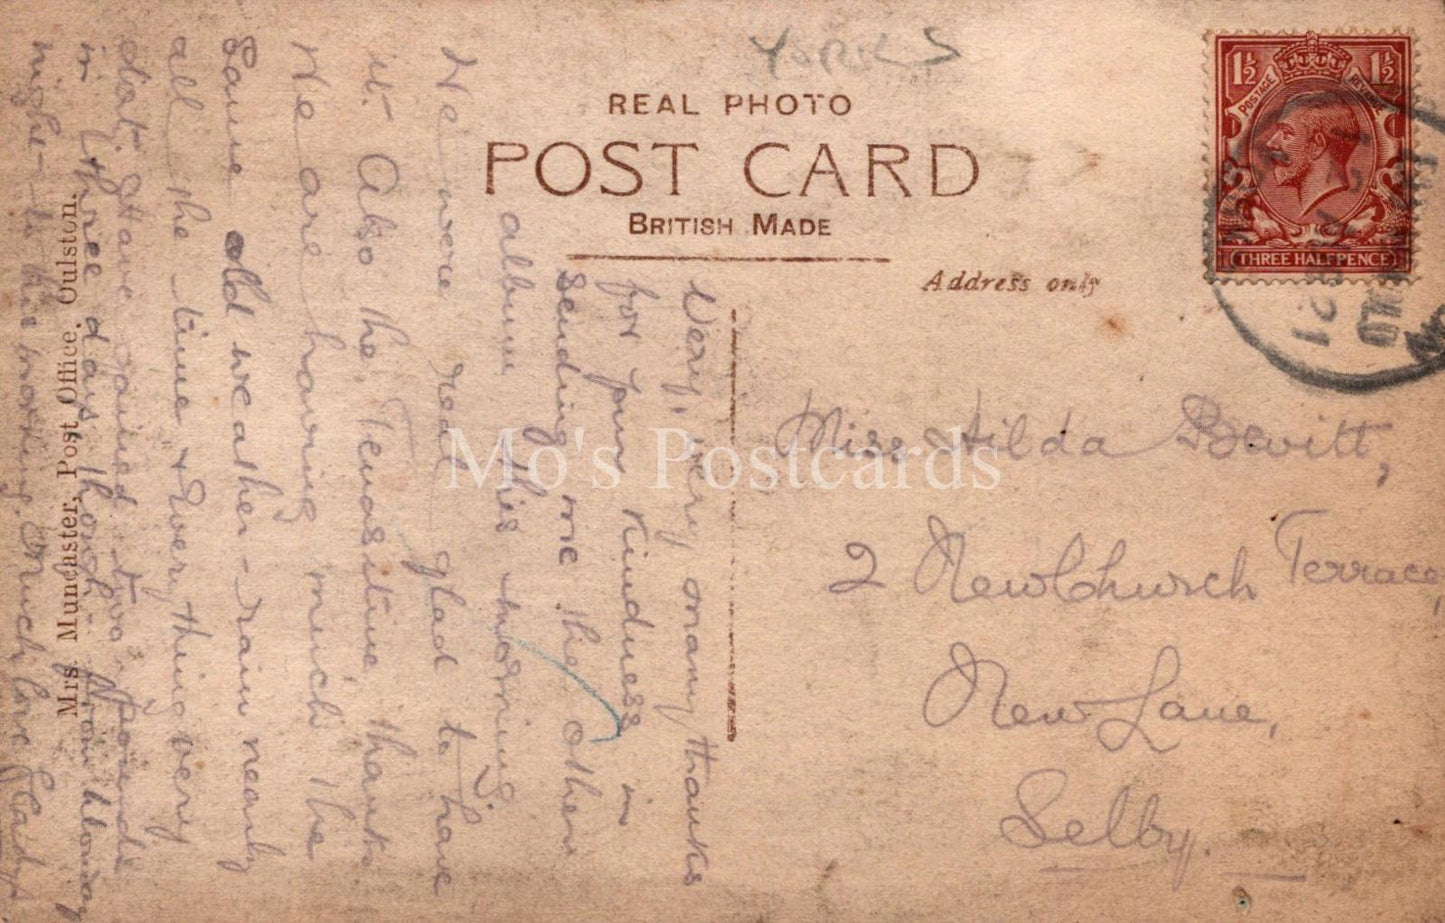 YORKS
REAL PHOTO
POST CARD
BRITISH MADE
Address only
1½ 1½
POSTAGE REVENUE
THREE HALFPENCE
21
Miss Hilda Bewitt,
2 NewChurch Terrace,
New Lane,
Selby.
Very, very many thanks
for your kindness in
sending me the other
album this morning.
We were real glad to have
it. Also the Tenasitine, thanks.
We are having much the
same old weather - rain nearly
all the time, & everything very
flat. Have gained two pounds
in three days though from Monday
night to this morning. Much love Gladys
Mrs. Muncaster, Post Office, Oulston.
Mo's Postcards